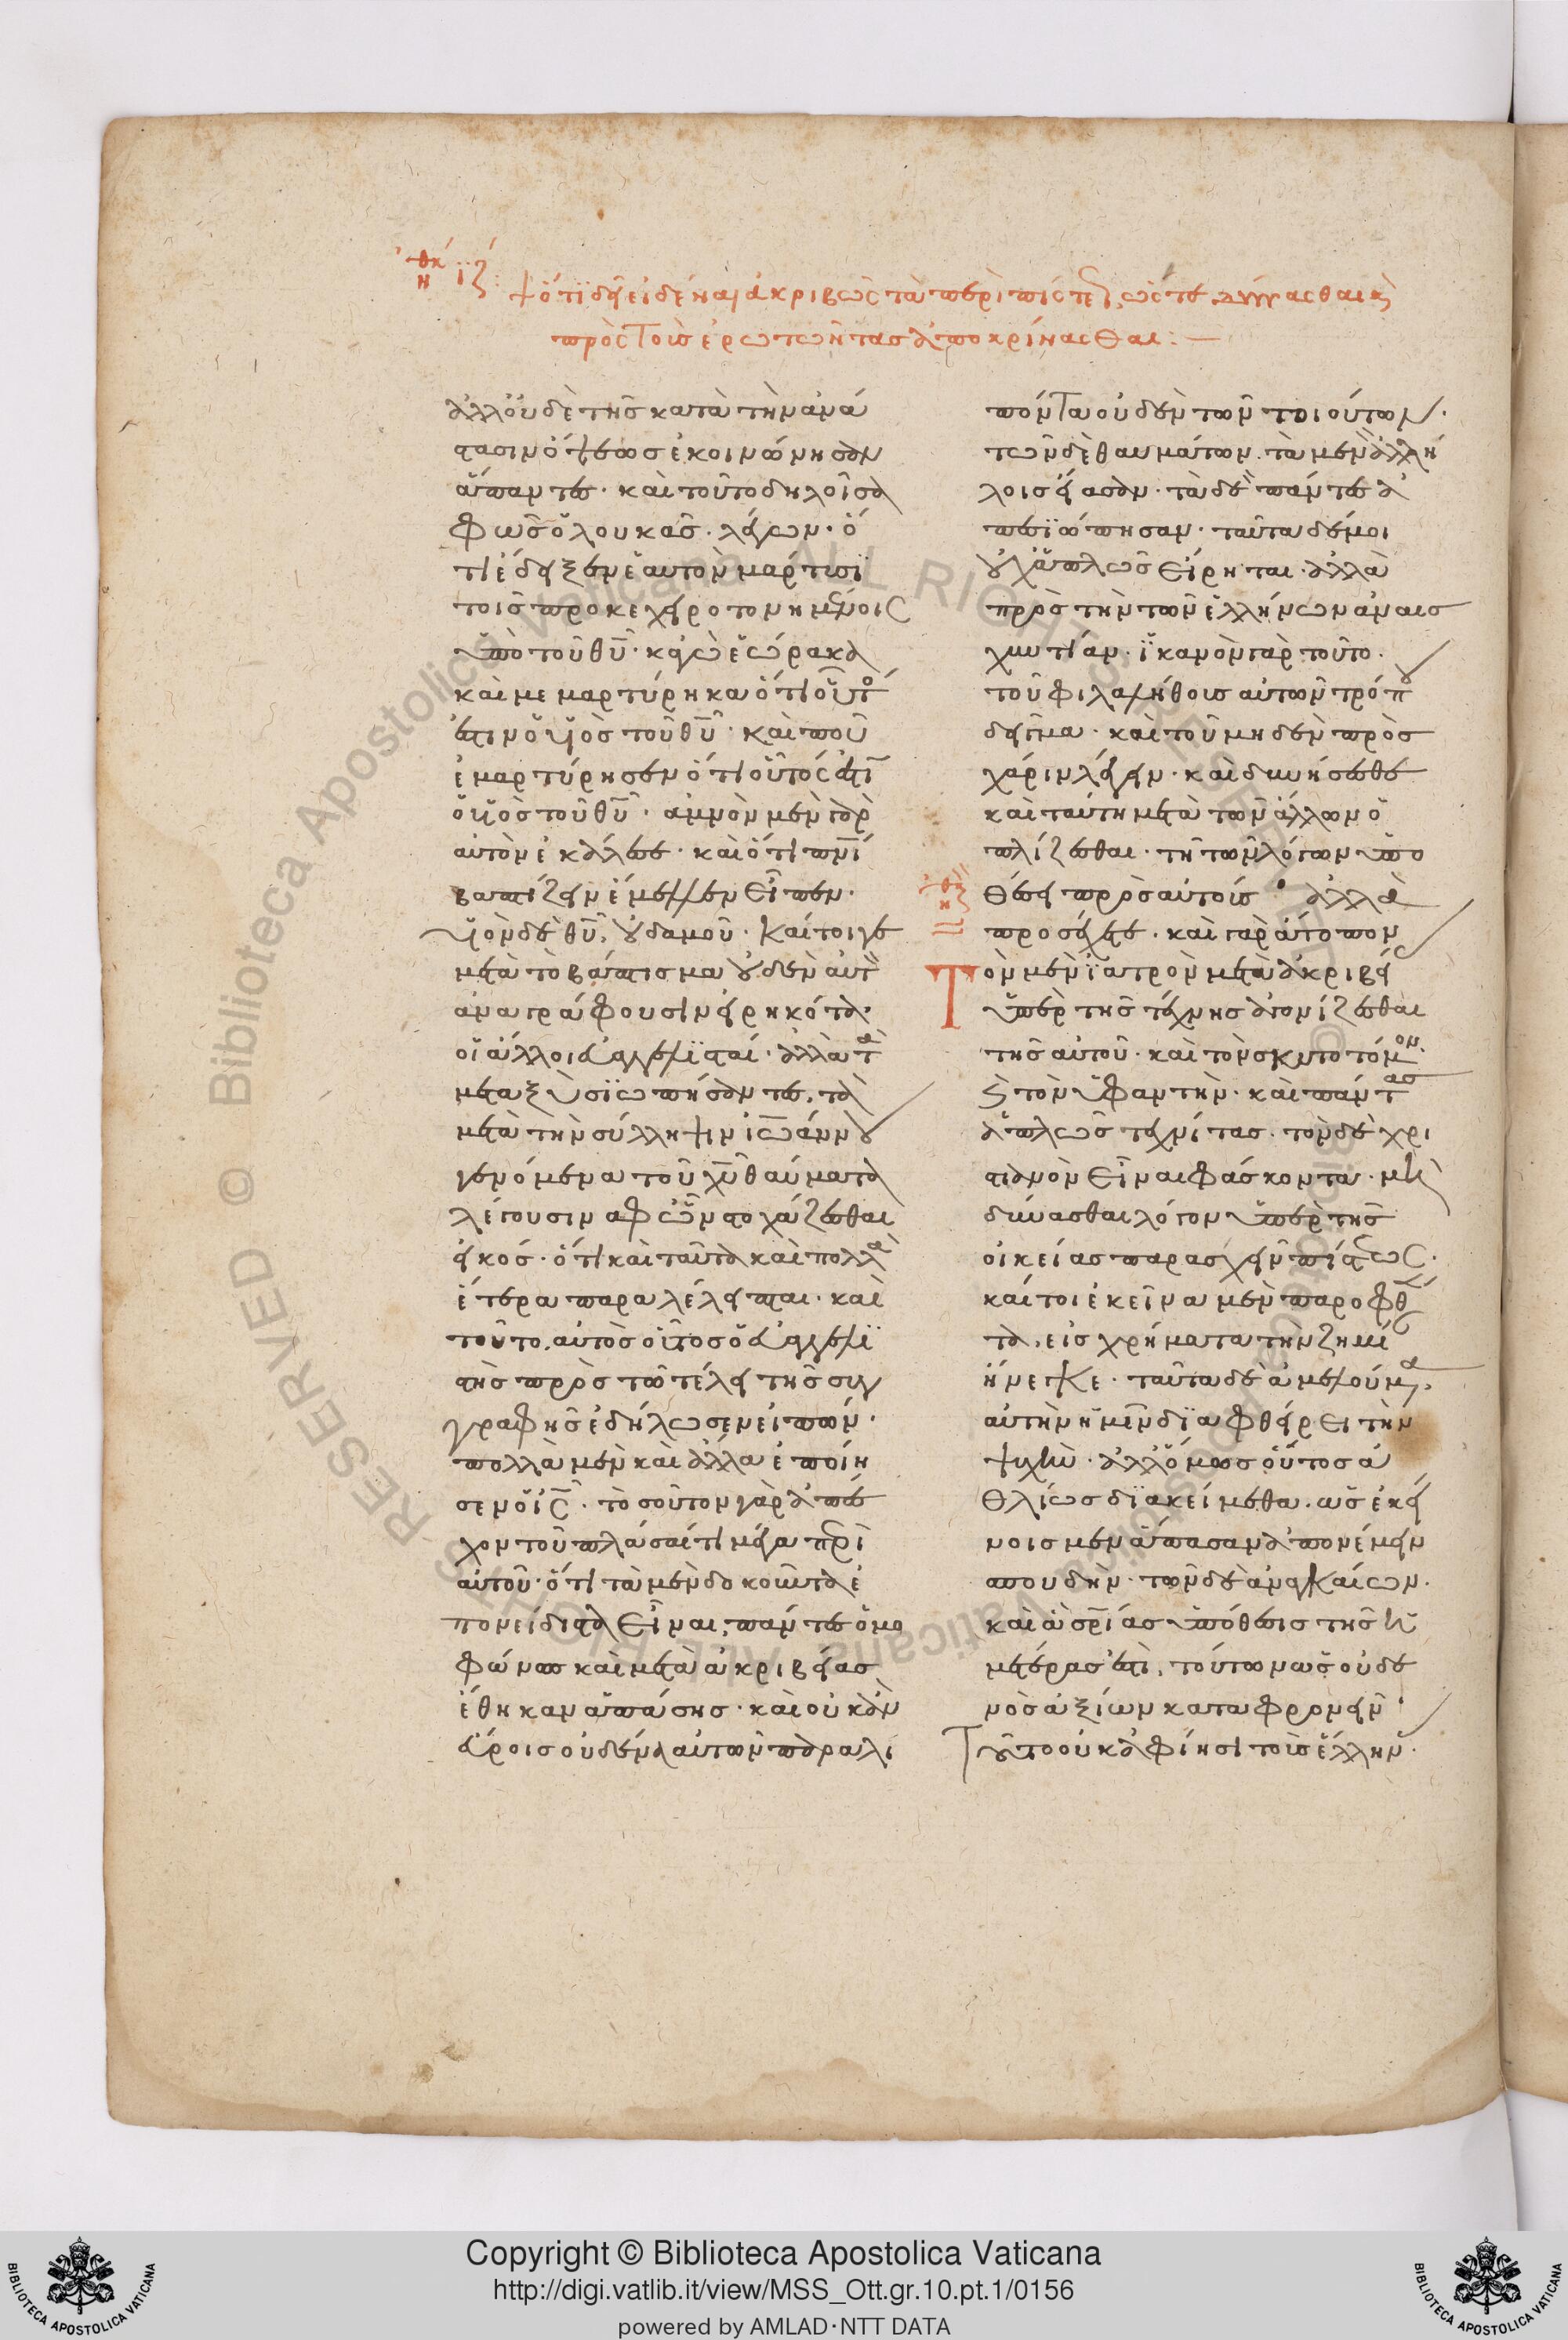 ἠθικ ιζ
ὅτι δεῖ εἰδέναι ἀκριβῶς τὰ περὶ πίστεως, ὥστε δύνασθαι κ
πρὸς τοὺς ἐρωτῶντας ἀποκρίνασθαι:—
ἀλλ' οὐδὲ τῆς κατὰ τὴν ἀνά
στασιν ὄψεως ἐκοινώνησαν
ἅπαντες· καὶ τοῦτο δηλοῖ σα
φῶς ὁ λουκᾶς· λέγων· ὅ
τι ἔδειξεν ἑαυτὸν μάρτυσι
τοῖς προκεχειροτονημένοις
ὑπὸ τοῦ θυ· κἀγὼ ἑώρακα
καὶ μεμαρτύρηκα ὅτι οὗτο
ἐστιν ὁ υἱὸς τοῦ θυ· καὶ ποῦ
ἐμαρτύρησεν ὅτι οὗτός ἐστι
ὁ υἱὸς τοῦ θυ· ἀμνὸν μὲν γὰρ
αὐτὸν ἐκάλεσε· καὶ ὅτι πνι
βαπτίζειν ἔμελλεν εἶπεν·
υἱὸν δὲ θυ, οὐδαμοῦ· καίτοιγε
μετὰ τὸ βάπτισμα οὐδὲν αὐτ
ἀναγράφουσιν εἰρηκότα·
οἱ ἄλλοι εὐαγγελισταί· ἀλλὰ τα
μεταξὺ σιωπήσαντες, τὰ
μετὰ τὴν σύλληψιν ἰωάννου
γενόμενα τοῦ χυ θαύματα
λέγουσιν ἀφ' ὧν στοχάζεσθαι
εἰκός· ὅτι καὶ ταῦτα καὶ πολλὰ
ἕτερα παραλέλειπται· καὶ
τοῦτο, αὐτὸς οὗτος ὁ εὐαγγελι
στὴς πρὸς τῶ τέλει τῆς συγ
γραφῆς ἐδήλωσεν εἰπών·
πολλὰ μὲν καὶ ἄλλα ἐποίη
σεν ὁ ις· τοσοῦτον γὰρ ἀπέ
χον τοῦ πλάσαί τι μέγα περὶ
αὐτοῦ· ὅτι τὰ μὲν δοκοῦντα ἐ
πονείδιστα εἶναι, πάντες ὁμο
φώνως καὶ μετὰ ἀκριβείας
ἔθηκαν ἁπάσης· καὶ οὐκ ἂν
εὕροις οὐδένα αὐτῶν παραλι
πόντα οὐδὲν τῶν τοιούτων·
τῶν δὲ θαυμάτων, τὰ μὲν ἀλλή
λοις εἴασαν· τὰ δὲ πάντες ἀ
πεσιώπησαν· ταῦτα δέ μοι
οὐχ ἁπλῶς εἴρηται· ἀλλὰ
πρὸς τὴν τῶν ἑλλήνων ἀναισ
χυντίαν· ἱκανὸν γὰρ τοῦτο·
τοῦ φιλαλήθους αὐτῶν τρόπου
δεῖγμα· καὶ τοῦ μηδὲν πρὸς
χάριν λέγειν· καὶ δυνήσεσθε
καὶ ταύτη μετὰ τῶν ἄλλων ὁ
πλίζεσθαι· τῆ τῶν λόγων ὑπο
θέσει πρὸς αὐτούς· ἀλλὰ
ἠθικ
προσέχετε· καὶ γὰρ ἄτοπον
Τὸν μὲν ἰατρὸν μετὰ ἀκριβεί
ὑπὲρ τῆς τέχνης ἀγωνίζεσθαι
τῆς αὐτοῦ· καὶ τὸν σκυτοτόμον·
κ τὸν ὑφαντὴν· καὶ πάντας
ἁπλῶς τεχνίτας· τὸν δὲ χρι
στιανὸν εἶναι φάσκοντα· μὴ
δύνασθαι λόγον ὑπὲρ τῆς
οἰκείας παρασχεῖν πίστεως·
καίτοι ἐκεῖνα μὲν παροφθέν
τα, εἰς χρήματα τὴν ζημί
ἤνεγκε· ταῦτα δὲ ἀμελούμενα
αὐτὴν ἡμῖν διαφθείρει τὴν
ψυχὴν· ἀλλ' ὅμως οὕτως ἀ
θλίως διακείμεθα, ὡς ἐκεί
νοις μὲν ἅπασαν ἀπονέμειν
σπουδὴν· τῶν δὲ ἀναγκαίων·
καὶ ἃ σρίας ὑπόθεσις τῆς ἡ
μετέρας ἐστὶ, τούτων ὡς οὐδε
νὸς ἀξίων καταφρονεῖν·
Τοῦτο οὐκ ἀφίησι τοὺς ἕλλην·
Copyright © Biblioteca Apostolica Vaticana
http://digi.vatlib.it/view/MSS_Ott.gr.10.pt.1/0156
powered by AMLAD·NTT DATA